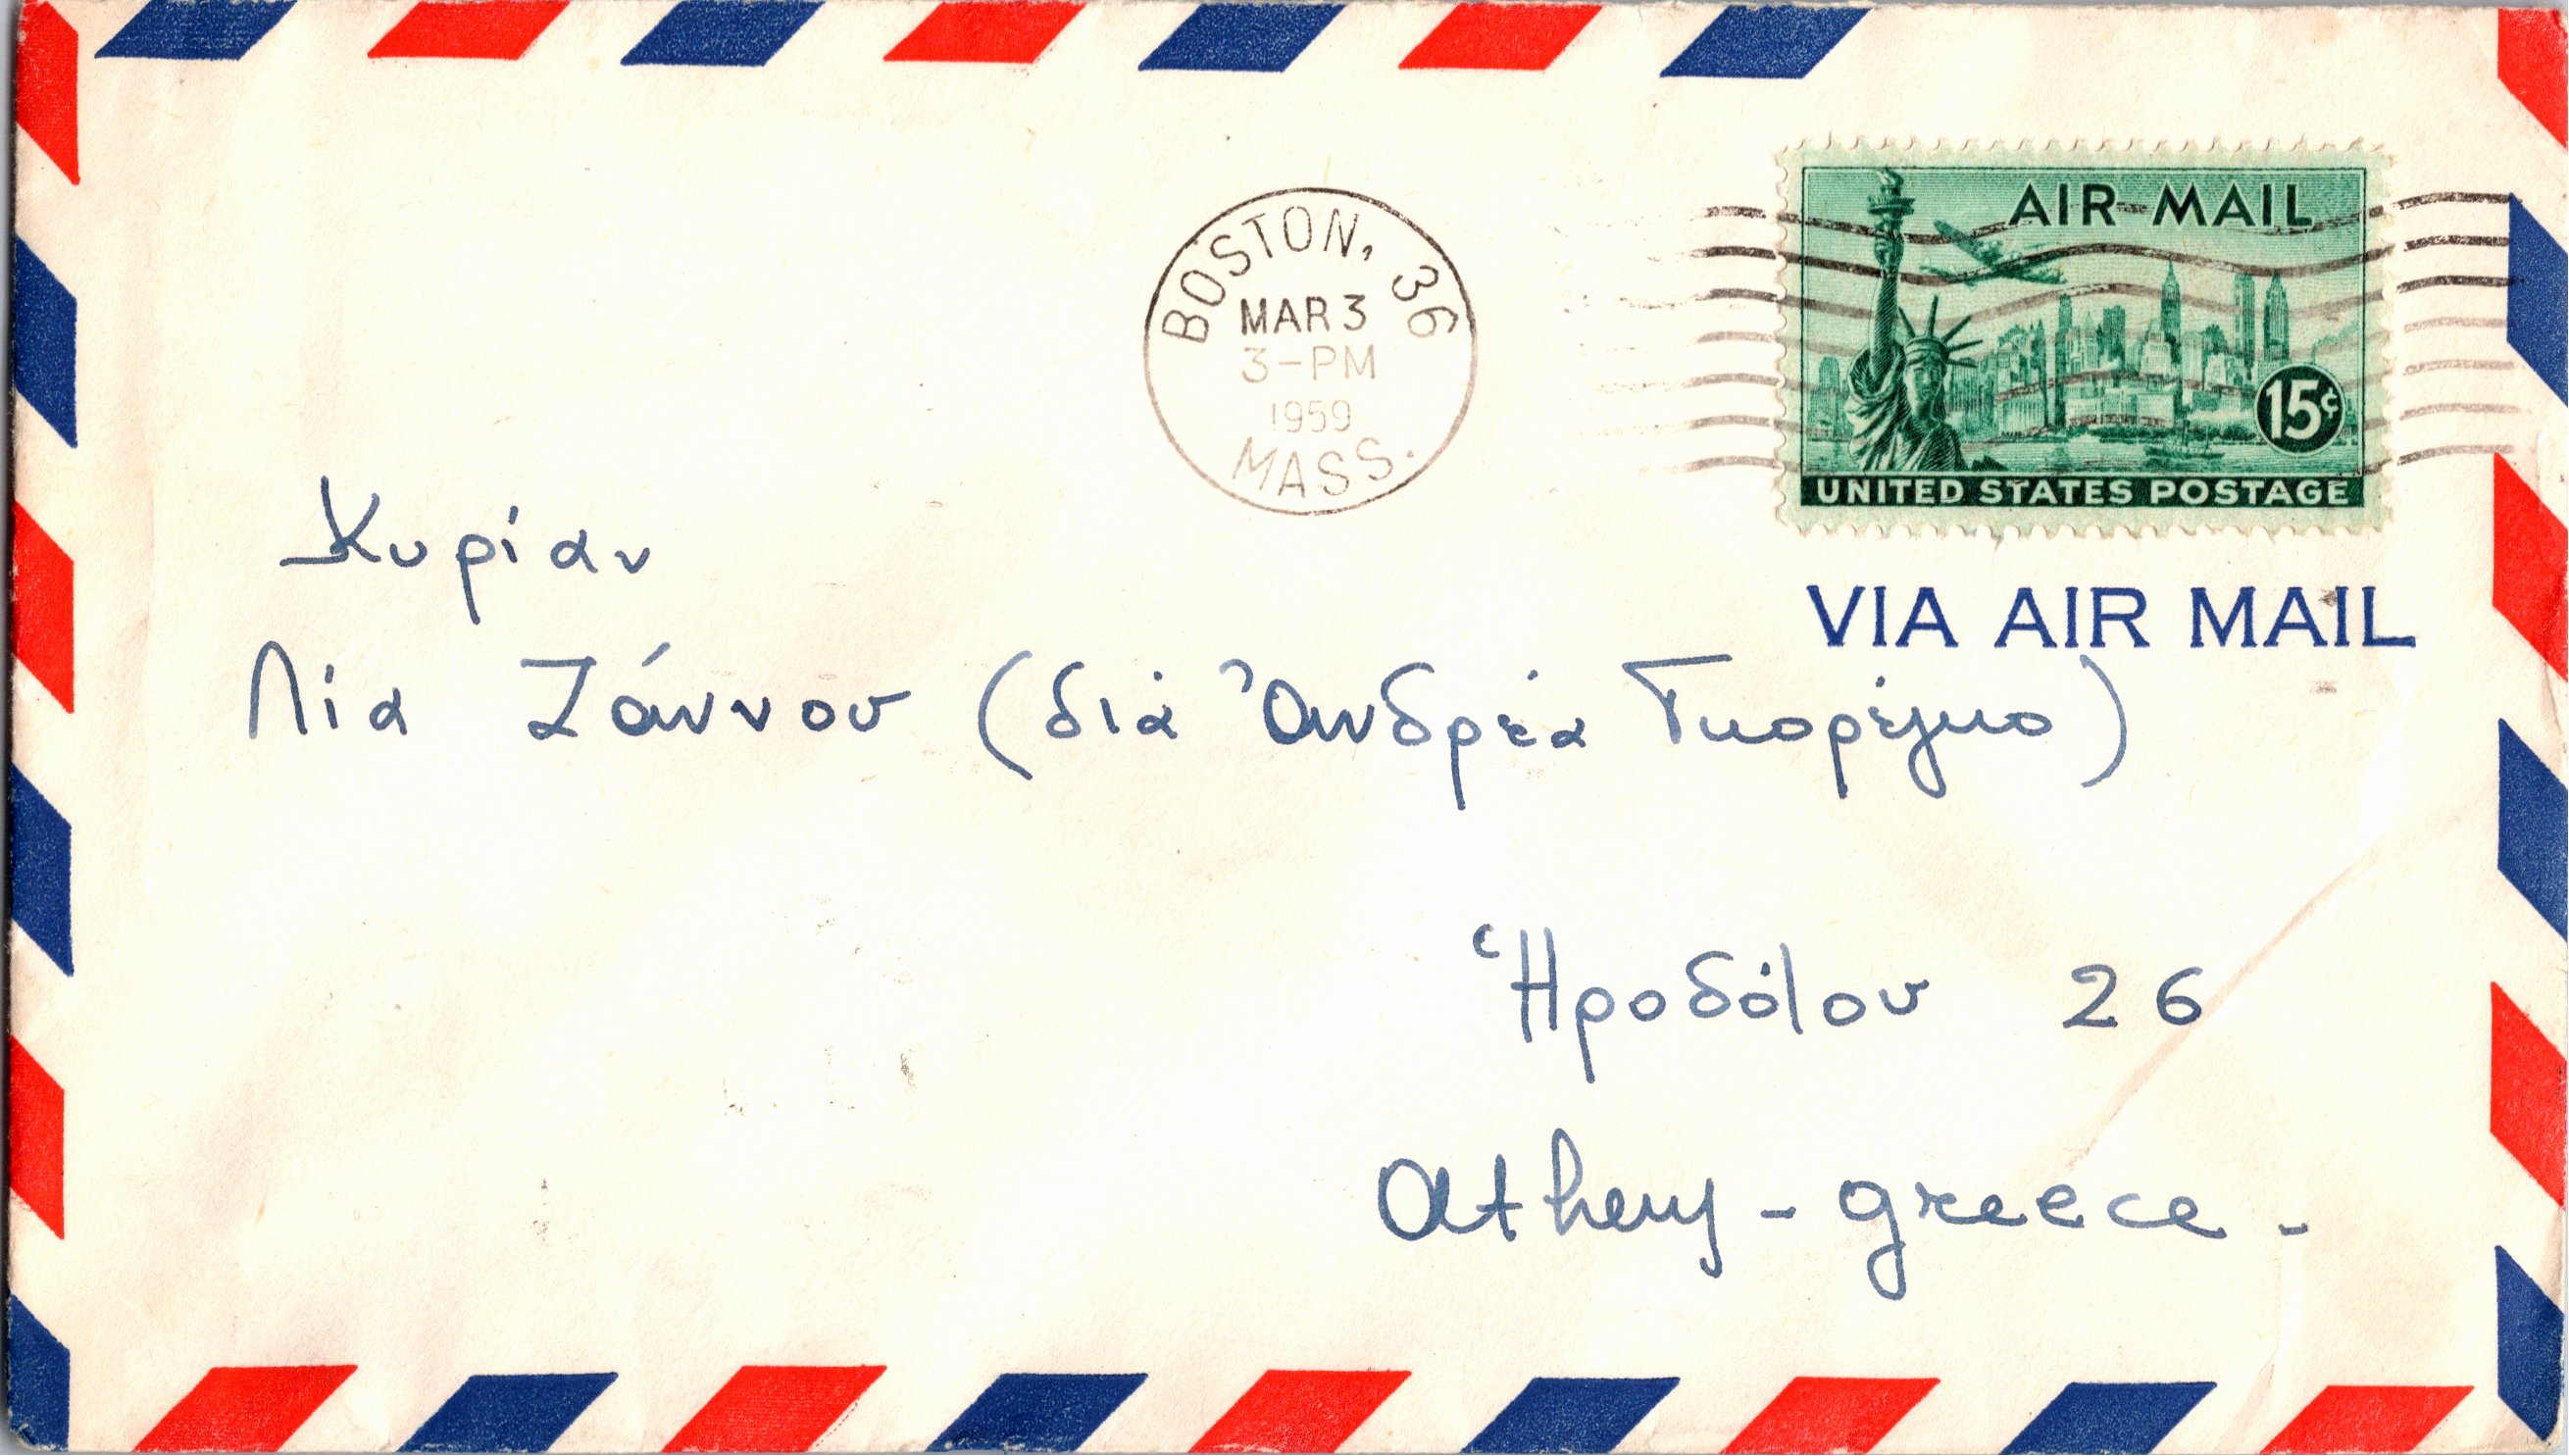 BOSTON, 36
MAR 3
3-PM
1959
MASS.
AIR MAIL
15¢
UNITED STATES POSTAGE
VIA AIR MAIL
Κυρίαν
Λία Ζάννου (διά Ἀνδρέα Γκορέγκο)
Ἡροδότου 26
Athens - Greece -